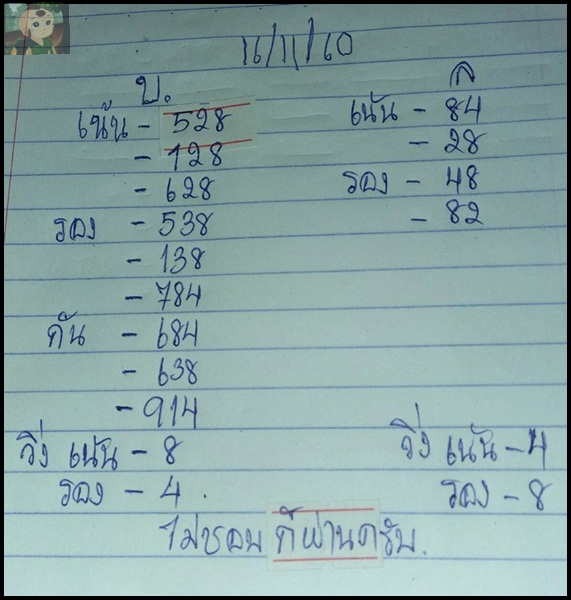 16/11/60
บ. ล
เน้น - 528 เน้น - 84
- 128 - 28
- 628 รอง - 48
รอง - 538 - 82
- 138
- 784
กัน - 684
- 638
- 914
วิ่ง เน้น - 8 วิ่ง เน้น - 4
รอง - 4. รอง - 8
ไม่ชอบ ก็ผ่านครับ.